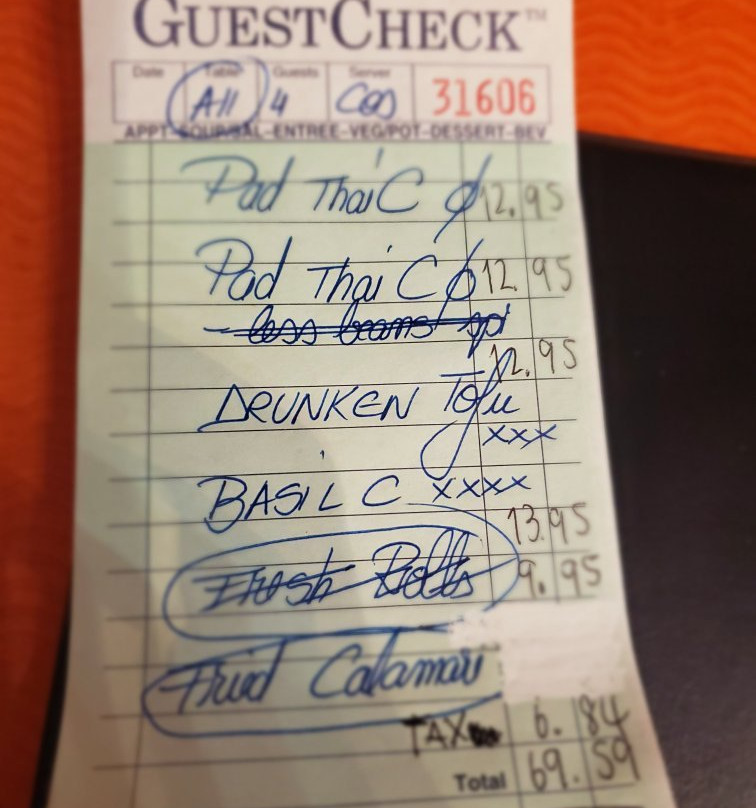 GUESTCHECK™
Date Table Guests Server
A11 4 31606
APPT-SOUP/SAL-ENTREE-VEG/POT-DESSERT-BEV
Pad Thai C ∅ 12.95
Pad Thai C ∅ 12.95
- less beans spt
12.95
DRUNKEN Tofu
xxx
BASIL C xxxx
13.95
Fresh Rolls 9.95
Fried Calamari
TAX 6.84
Total 69.59